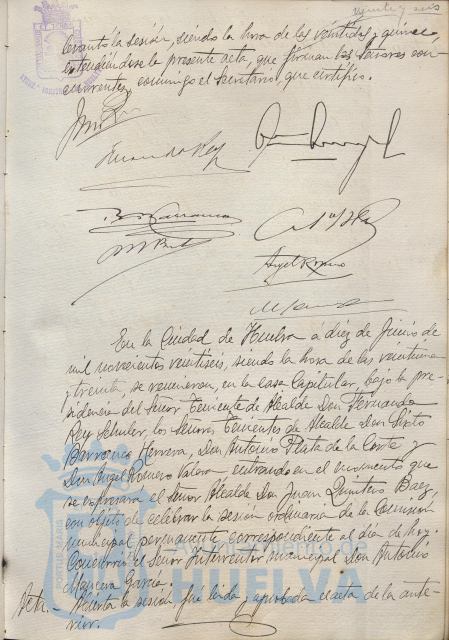 veinte y seis
levantó la sesión, siendo la hora de las veintidos y quince,
extendiéndose la presente acta, que firman los Señores con-
currentes, conmigo el Secretario, que certifico.
Fernando Rey
Angel Romero
En la Ciudad de Huelva á diez de Junio de
mil novecientos veintiseis, siendo la hora de las veintiuna
y treinta, se reunieron, en la casa Capitular, bajo la pre-
sidencia del Señor Teniente de Alcalde Don Fernando
Rey Schuler, los Señores Tenientes de Alcalde Don Sixto
Barranco Herrera, Don Antonio Plata de la Corte y
Don Angel Romero Valera entrando en el momento que
se expresará el Señor Alcalde Don Juan Quintero Baez,
con objeto de celebrar la sesión ordinaria de la Comisión
municipal permanente correspondiente al día de hoy.
Concurrió el Señor Interventor municipal Don Antonio
Mancera Garcia.
Acta.- Abierta la sesión, fué leida y aprobada el acta de la ante-
rior.
HUELVA